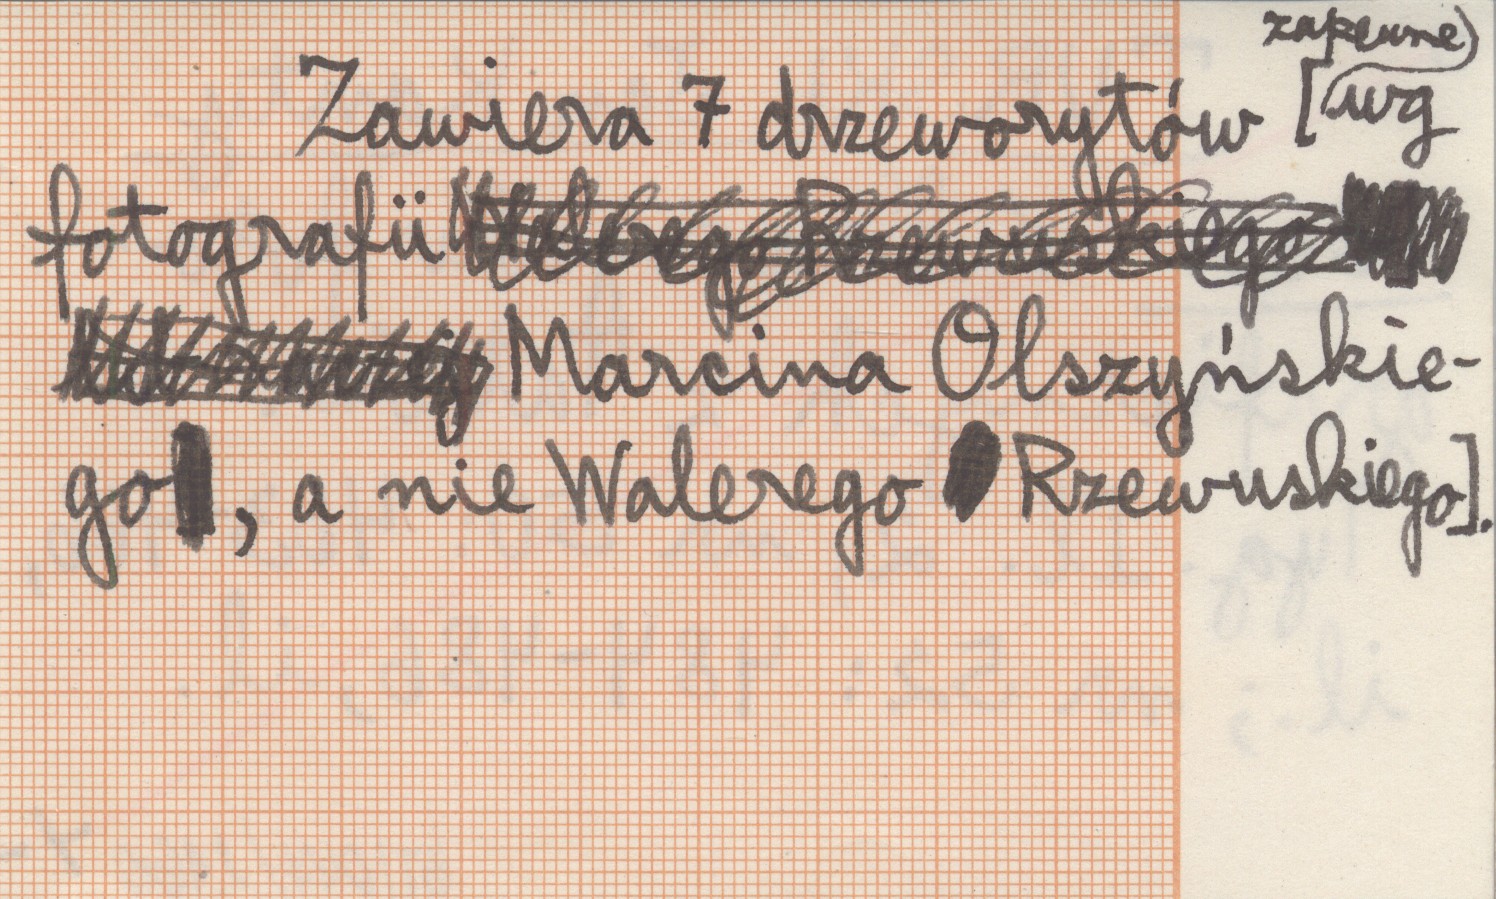 zapewne
Zawiera 7 drzeworytów [wg
fotografii Walerego Rzewuskiego
Marcina Olszyńskie-
go, a nie Walerego Rzewuskiego].